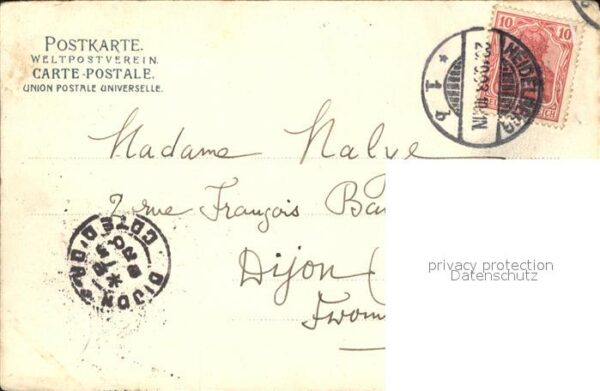 POSTKARTE.
WELTPOSTVEREIN.
CARTE-POSTALE.
UNION POSTALE UNIVERSELLE.
10 10
HEIDELBERG
* 1 b
Madame Malve
2 rue François
Dijon (
DIJON
COTE D'OR
privacy protection
Datenschutz